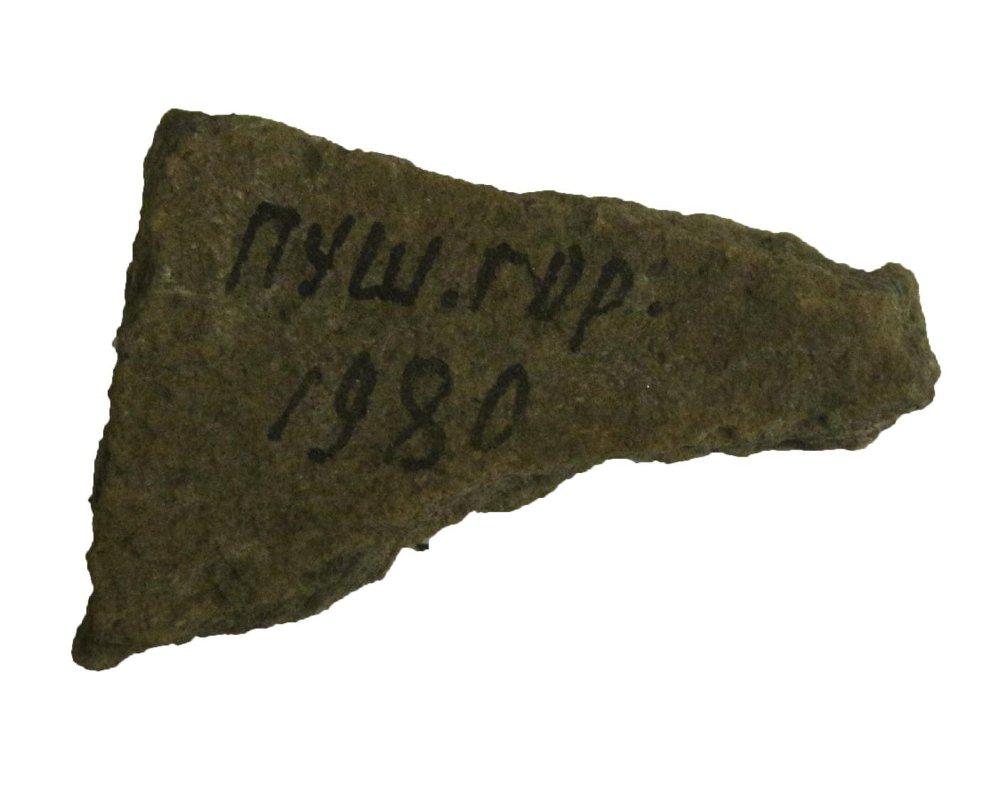 ПУШ. ГОР.
1980